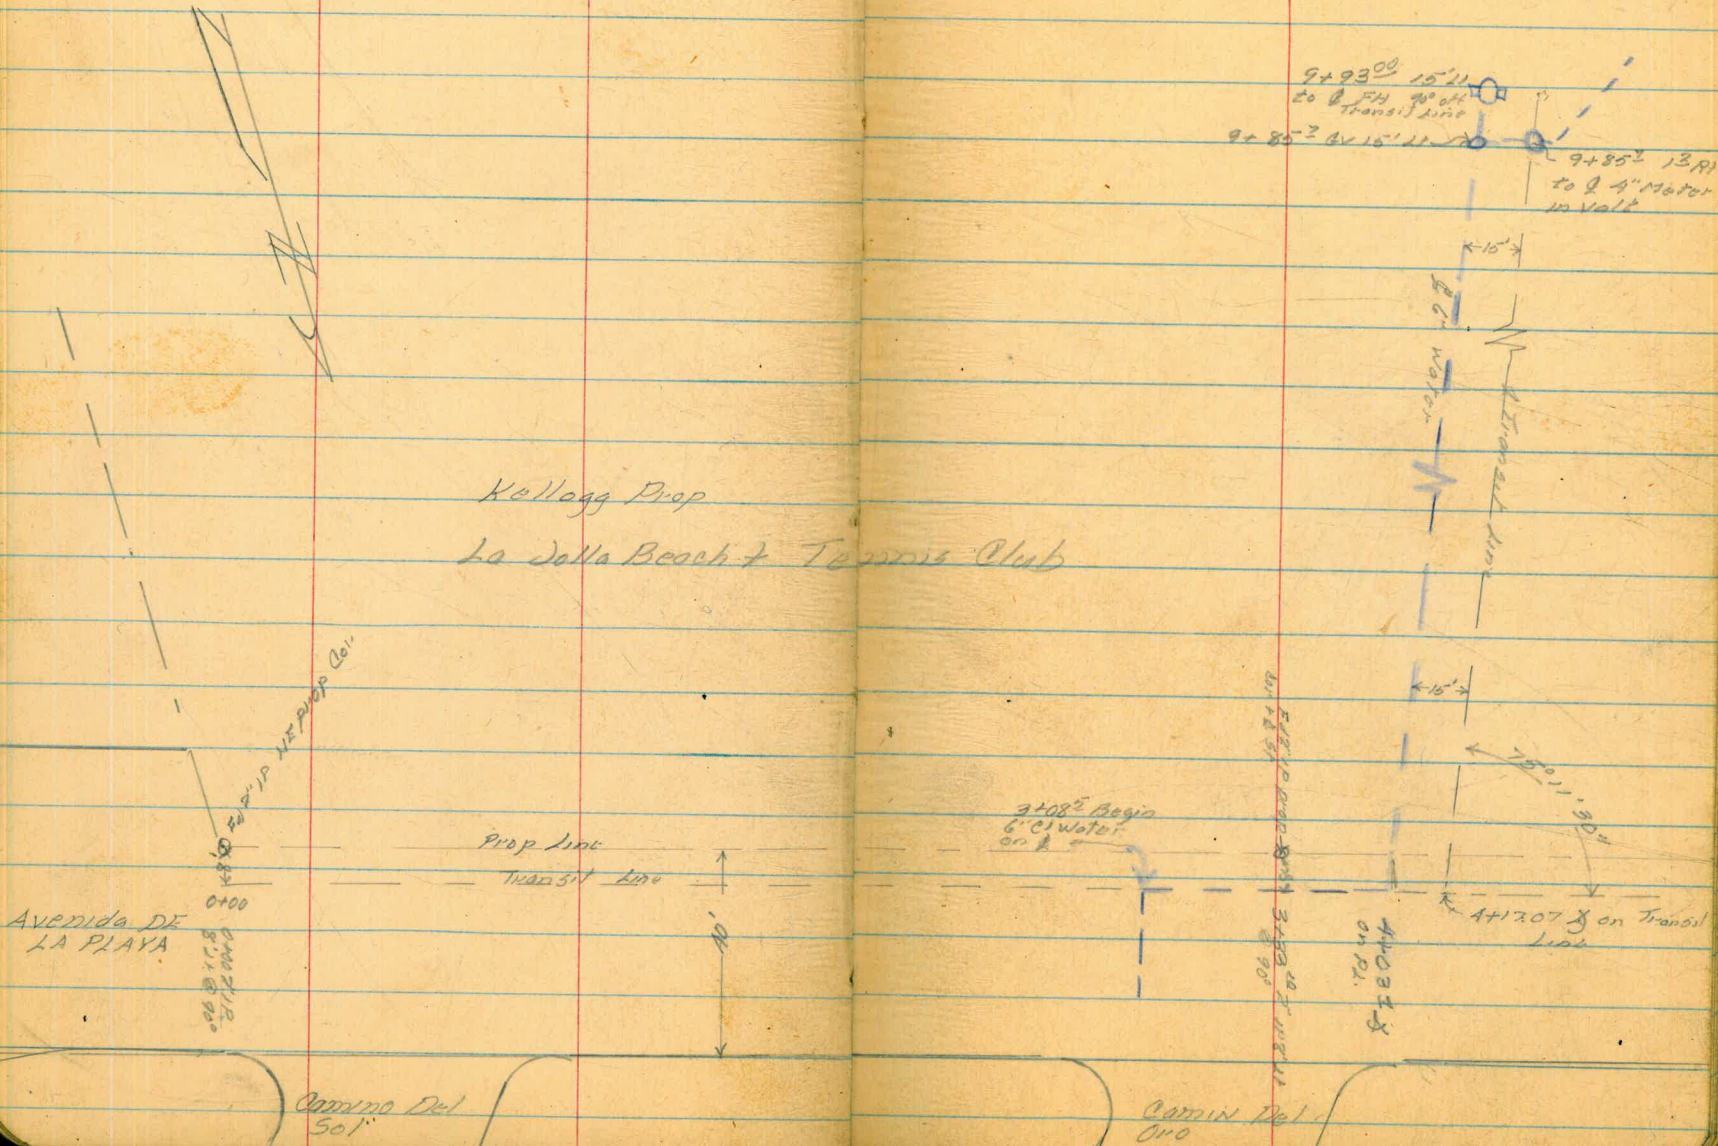 9+93⁰⁰ 15' Lt
to ℄ FH 90° off
Transit Line
9+85² GV 15' Lt
9+85² 13 Rt
to ℄ 4" Meter
in Valt
15'
℄ 6" Water
Transit Line
Kellogg Prop
La Jolla Beach & Tennis Club
15'
75° 11' 30"
NE Prop Cor.
3+08⁵ Begin
6" CI Water
on ℄
Prop Line
Transit Line
0+00
40'
Avenida DE
LA PLAYA
8' Lt @ 90°
@ 90°
on PL.
4+17.07 on Transit
Line
Camino Del
Sol
Camin Del
Oro